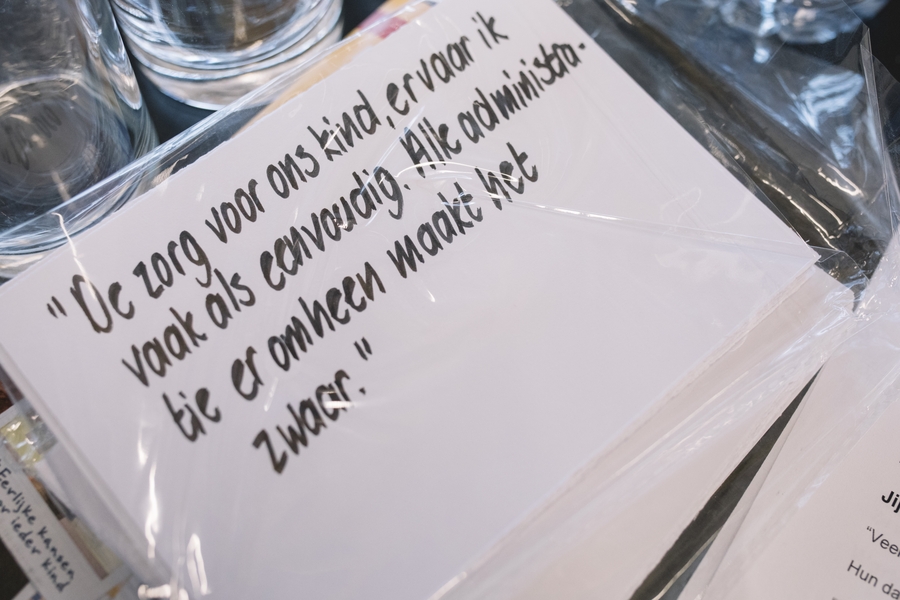 "De zorg voor ons kind, ervaar ik
vaak als eenvoudig. Alle administra-
tie er omheen maakt het
zwaar."
Eerlijke kansen
ieder kind
"Veel
Hun da